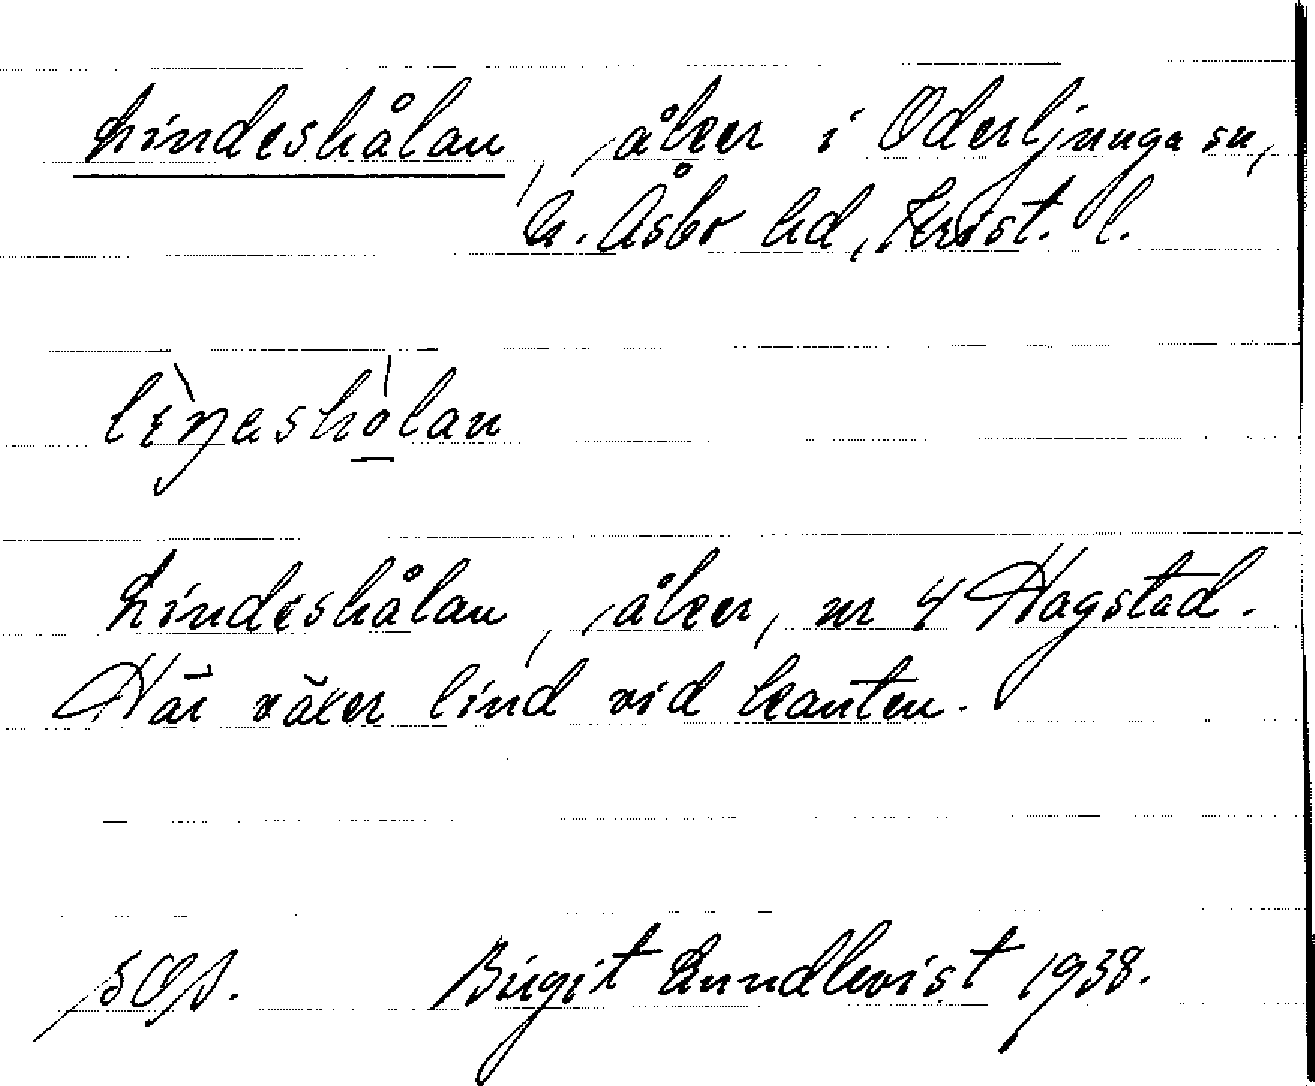 Lindeshålan, åker i Oderljunga sn,
N. Åsbo hd, Krist. l.
lìŋashòlan
Lindeshålan, åker, nr 4 Hagstad.
Här växer lind vid kanten.
Birgit Lundkvist 1938.